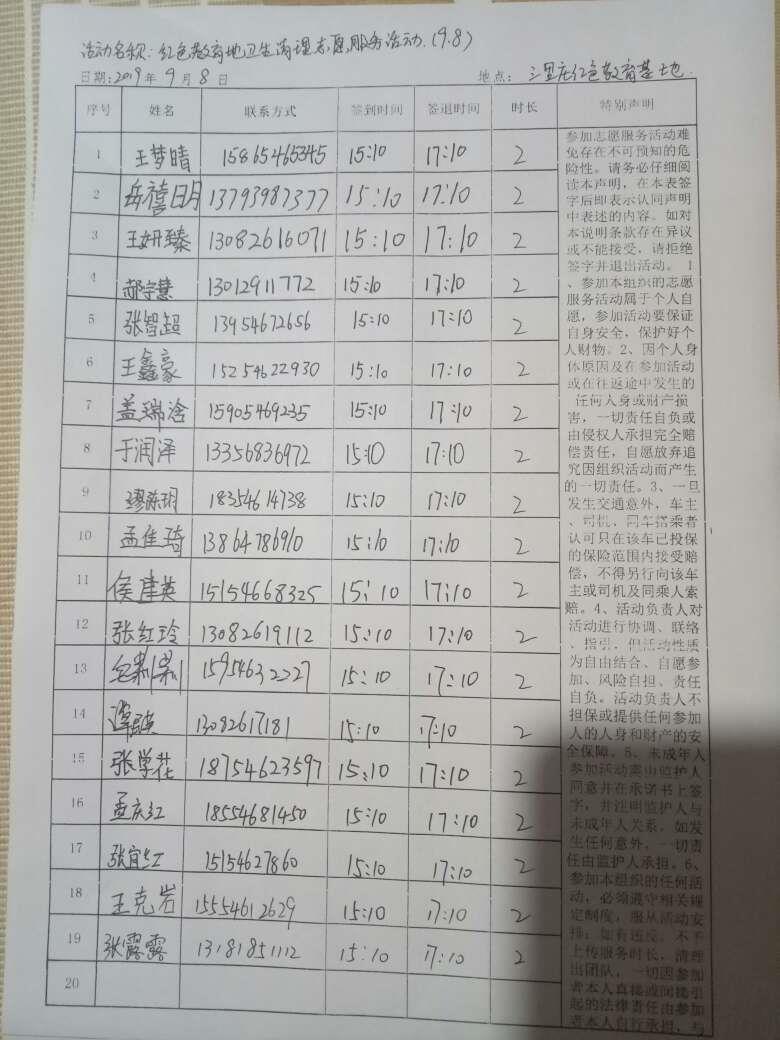 活动名称:红色教育地卫生清理志愿服务活动.(9.8)
日期:2019年9月8日 地点:三里庄红色教育基地.
序号 姓名 联系方式 签到时间 签退时间 时长 特别声明
1 王梦晴 15865465345 15:10 17:10 2
2 岳禧明 13793987377 15:10 17:10 2
3 王妍臻 13082616071 15:10 17:10 2
4 郝宇慧 13012911772 15:10 17:10 2
5 张智超 13954672656 15:10 17:10 2
6 王鑫豪 15254622930 15:10 17:10 2
7 盖瑞涵 15905469235 15:10 17:10 2
8 于润泽 13356836972 15:10 17:10 2
9 18354614738 15:10 17:10 2
10 孟佳琦 13864786910 15:10 17:10 2
11 侯建英 15154668325 15:10 17:10 2
12 张红玲 13082619112 15:10 17:10 2
13 15954632227 15:10 17:10 2
14 13082617181 15:10 17:10 2
15 张学花 18754623597 15:10 17:10 2
16 孟庆红 18554681450 15:10 17:10 2
17 张宜红 15154627860 15:10 17:10 2
18 王克岩 15554612629 15:10 17:10 2
19 张露露 13181851112 15:10 17:10 2
20
参加志愿服务活动难
免存在不可预知的危
险性。请务必仔细阅
读本声明,在本表签
字后即表示认同声明
中表述的内容。如对
本说明条款存在异议
或不能接受,请拒绝
签字并退出活动。 1
、参加本组织的志愿
服务活动属于个人自
愿,参加活动要保证
自身安全,保护好个
人财物。2、因个人身
体原因及在参加活动
或在往返途中发生的
任何人身或财产损
害,一切责任自负或
由侵权人承担完全赔
偿责任,自愿放弃追
究因组织活动而产生
的一切责任。3、一旦
发生交通意外,车主
、司机、同车搭乘者
认可只在该车已投保
的保险范围内接受赔
偿,不得另行向该车
主或司机及同乘人索
赔。4、活动负责人对
活动进行协调、联络
、指引,但活动性质
为自由结合、自愿参
加、风险自担、责任
自负。活动负责人不
担保或提供任何参加
人的人身和财产的安
全保障。5、未成年人
参加活动需由监护人
同意并在承诺书上签
字,并注明监护人与
未成年人关系,如发
生任何意外,一切责
任由监护人承担。6、
参加本组织的任何活
动,必须遵守相关规
定制度,服从活动安
排;如有违反,不予
上传服务时长,清理
出团队,一切因参加
者本人直接或间接引
起的法律责任由参加
者本人自行承担,与